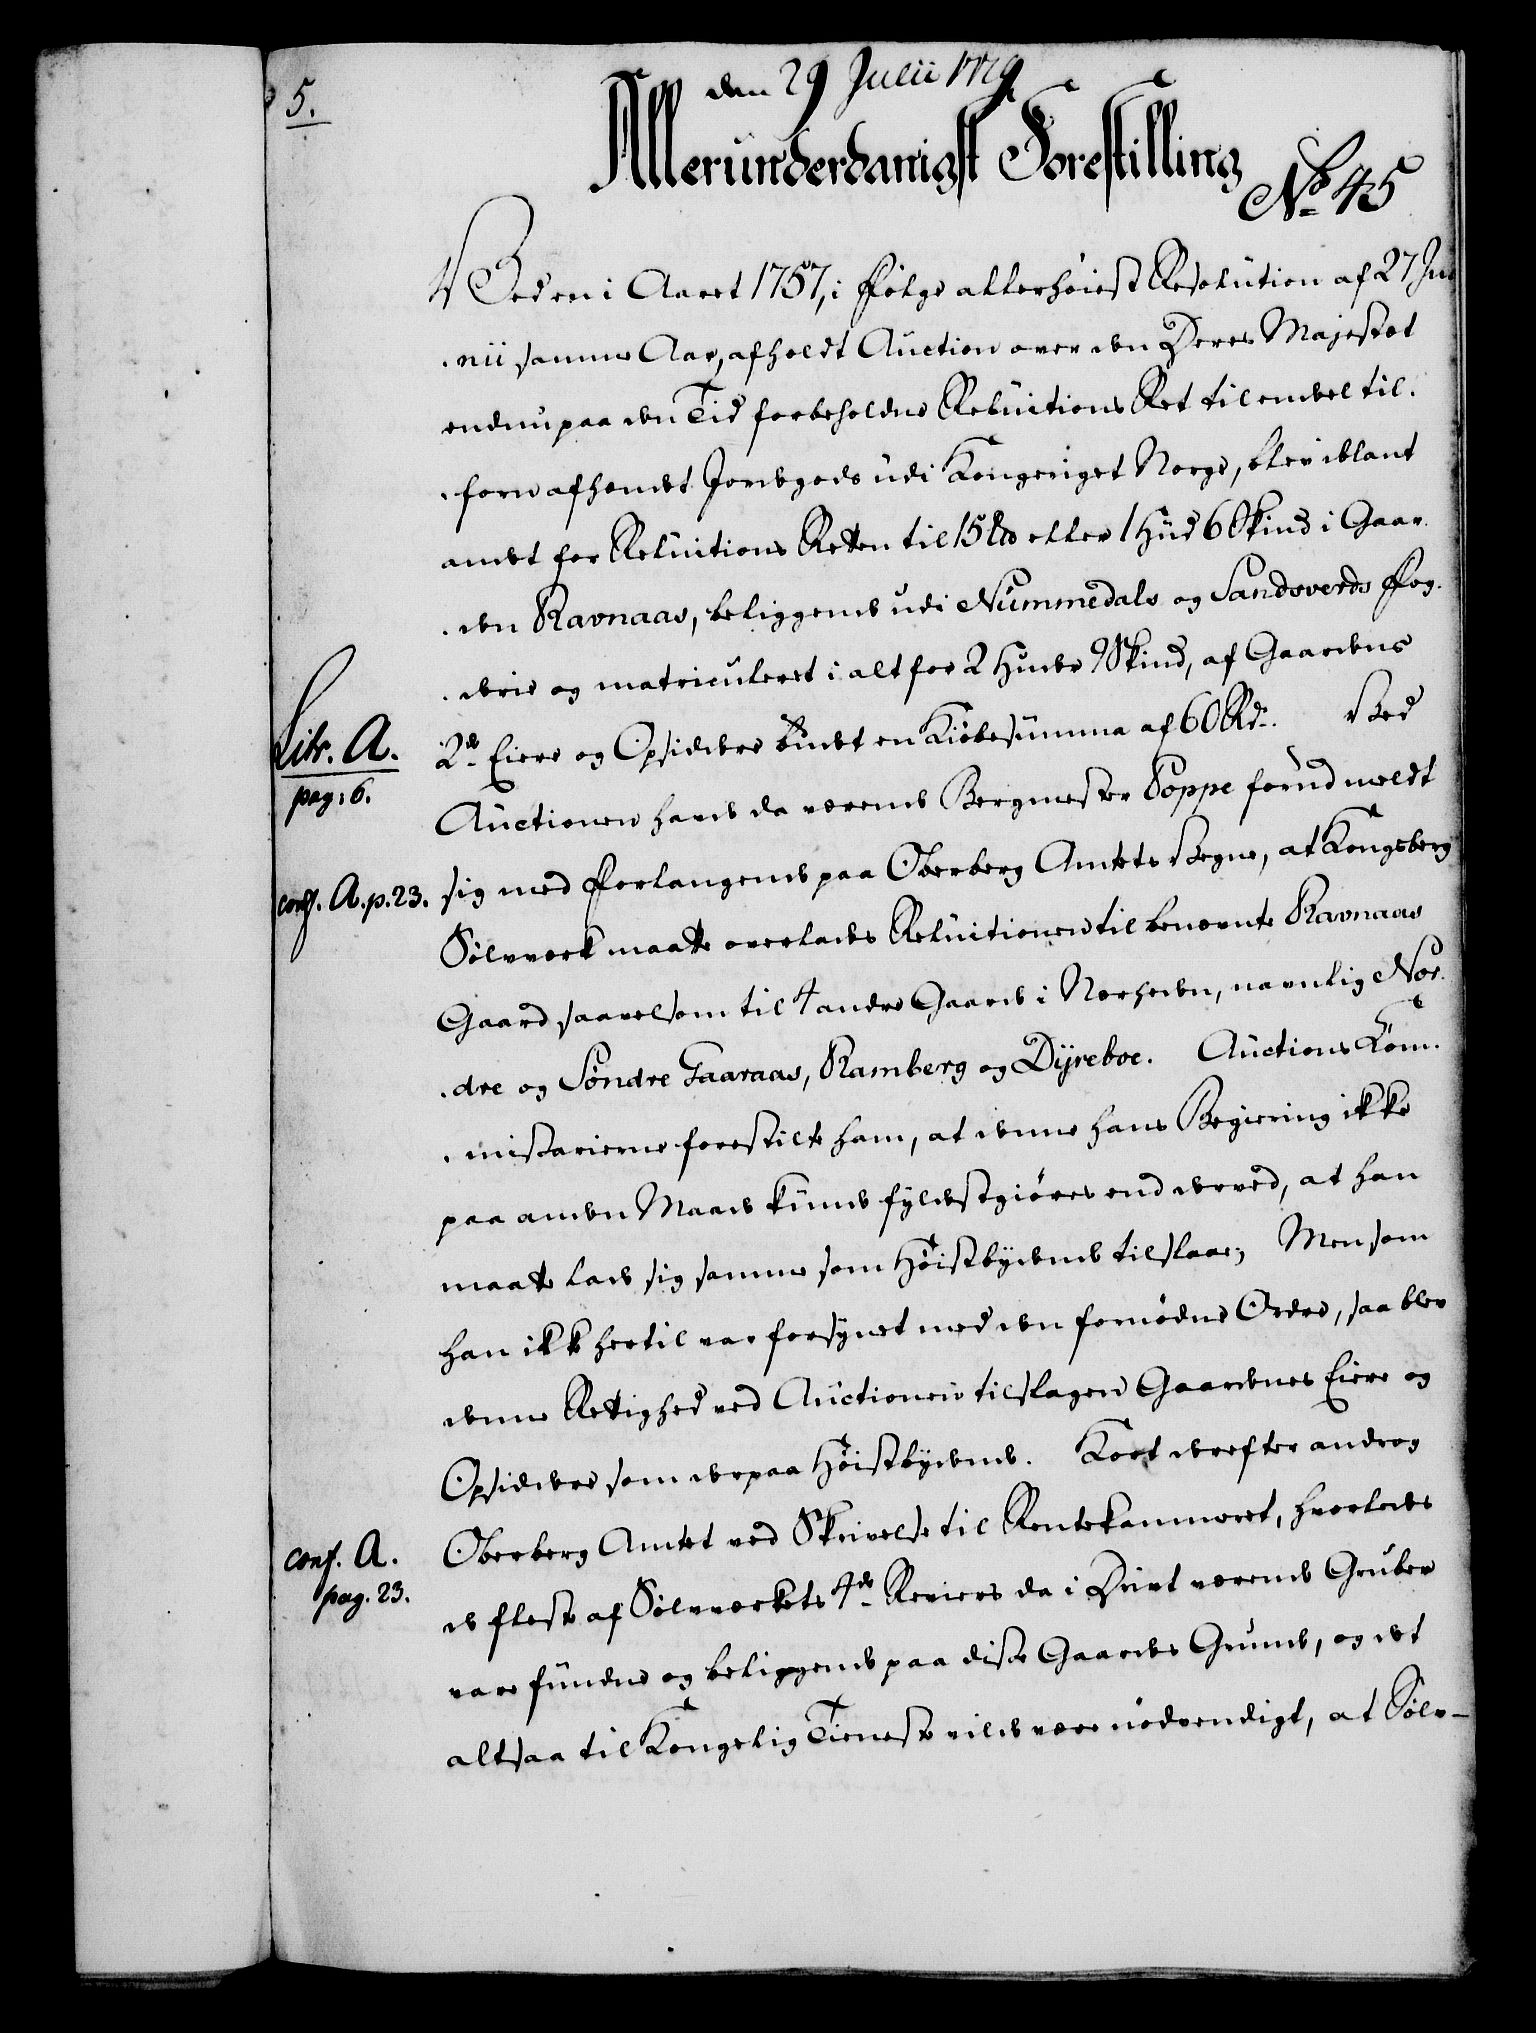 5.
den 29 Julii 1779
Allerunderdanigst Forestilling
No 45
Ved en i Aaret 1757, i følge allerhøiest Resolution af 27 Ju
nii samme Aar, afholdt Auction over den Deres Majestet
endnu paa den Tid forbeholdne Reluitions Ret til endeel til-
forn afhændet Jordegods udi Kongeriget Norge, blev iblant
andet for Reluitions Retten til 15 eller 1 Hud 6 Skind i Gaar-
den Ravnaas, beliggende udi Nummedals og Sandsverds Fog-
derie og matriculeret i alt for 2 Huder 9 Skind, af Gaardens
2de Eiere og Opsiddere budet en Kiøbesumma af 60 Rd. Ved
Litr. A.
pag: 6.
Auctionen havde da værende Bergmester Poppe forud meldt
sig med Forlangende paa Oberberg Amtets Vegne, at Kongsberg
conf. A. p. 23.
Sølvværk maatte overlades Reluitionen til benævnte Ravnaas
Gaard saavelsom til 4 andre Gaarde i Nærheden, navnlig Nor-
dre og Søndre Gaaraas, Ramberg og Dÿreboe. Auctions Com-
missarierne forestilte ham, at denne hans Begiering ikke
paa anden Maade kunde fyldestgiøres end derved, at han
maatte lade sig samme som Høistbydende tilslaae; Men som
han ikke hertil var forsynet med den fornødne Ordre, saa blev
denne Rettighed ved Auctionen tilslagen Gaardenes Eiere og
Opsiddere som derpaa Høistbydende. Kort derefter androg
Oberberg Amtet ved Skrivelse til Rentekammeret, hvorledes
conf. A.
pag. 23.
de fleste af Sølvværkets 4de Reviers da i Drivt værende Gruber
vare fundne og beliggende paa disse Gaardes Grund, og det
altsaa til Kongelig Tieneste vilde være nødvendigt, at Sølv-